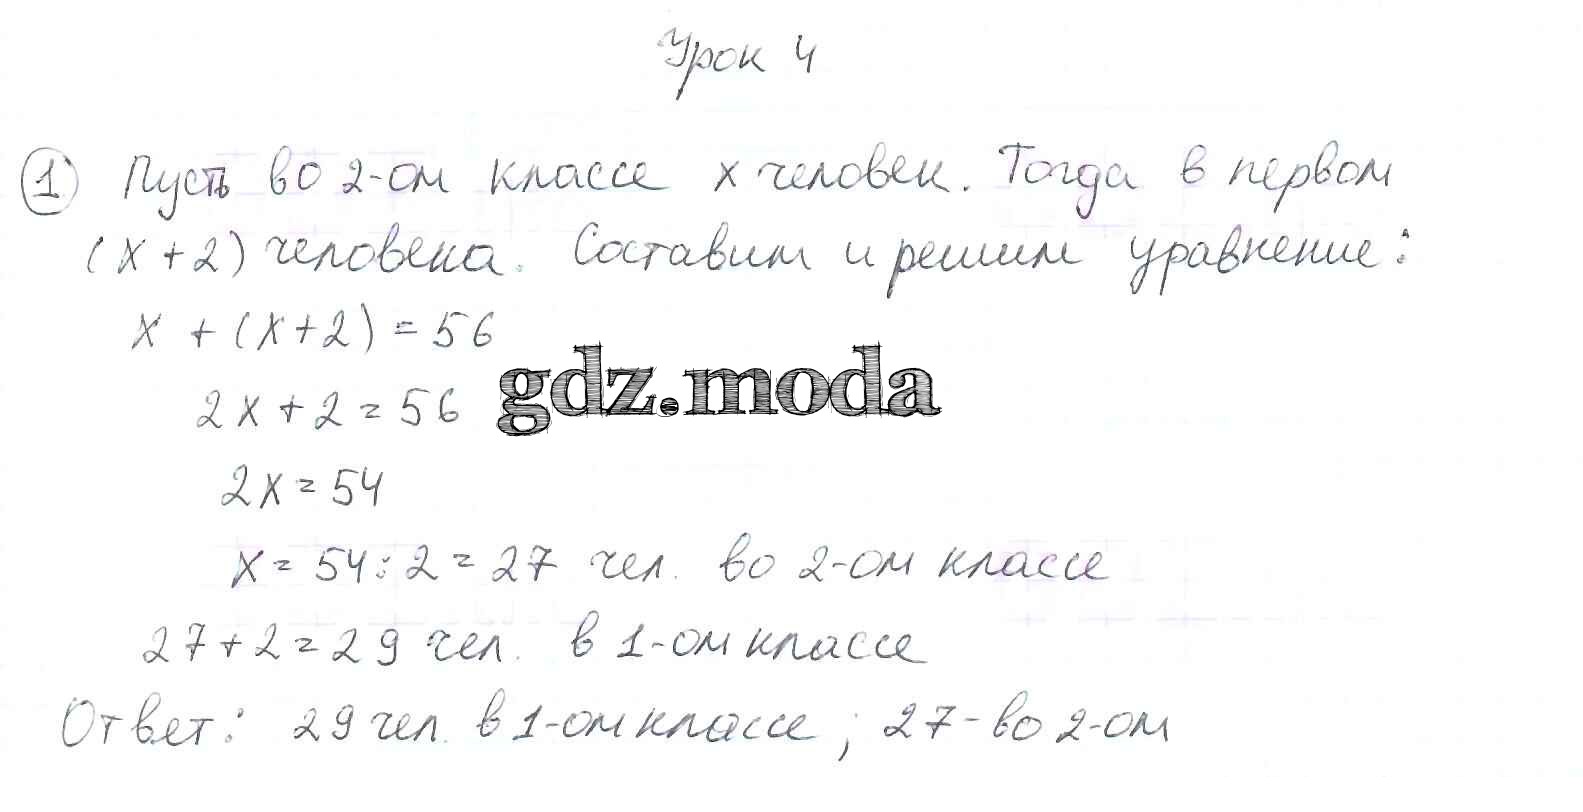 Урок 4
1 Пусть во 2-ом классе x человек. Тогда в первом
(x+2) человека. Составим и решим уравнение:
x + (x+2) = 56
gdz.moda
2x+2=56
2x=54
x= 54:2=27 чел. во 2-ом классе
27+2=29 чел. в 1-ом классе
Ответ: 29 чел. в 1-ом классе; 27-во 2-ом